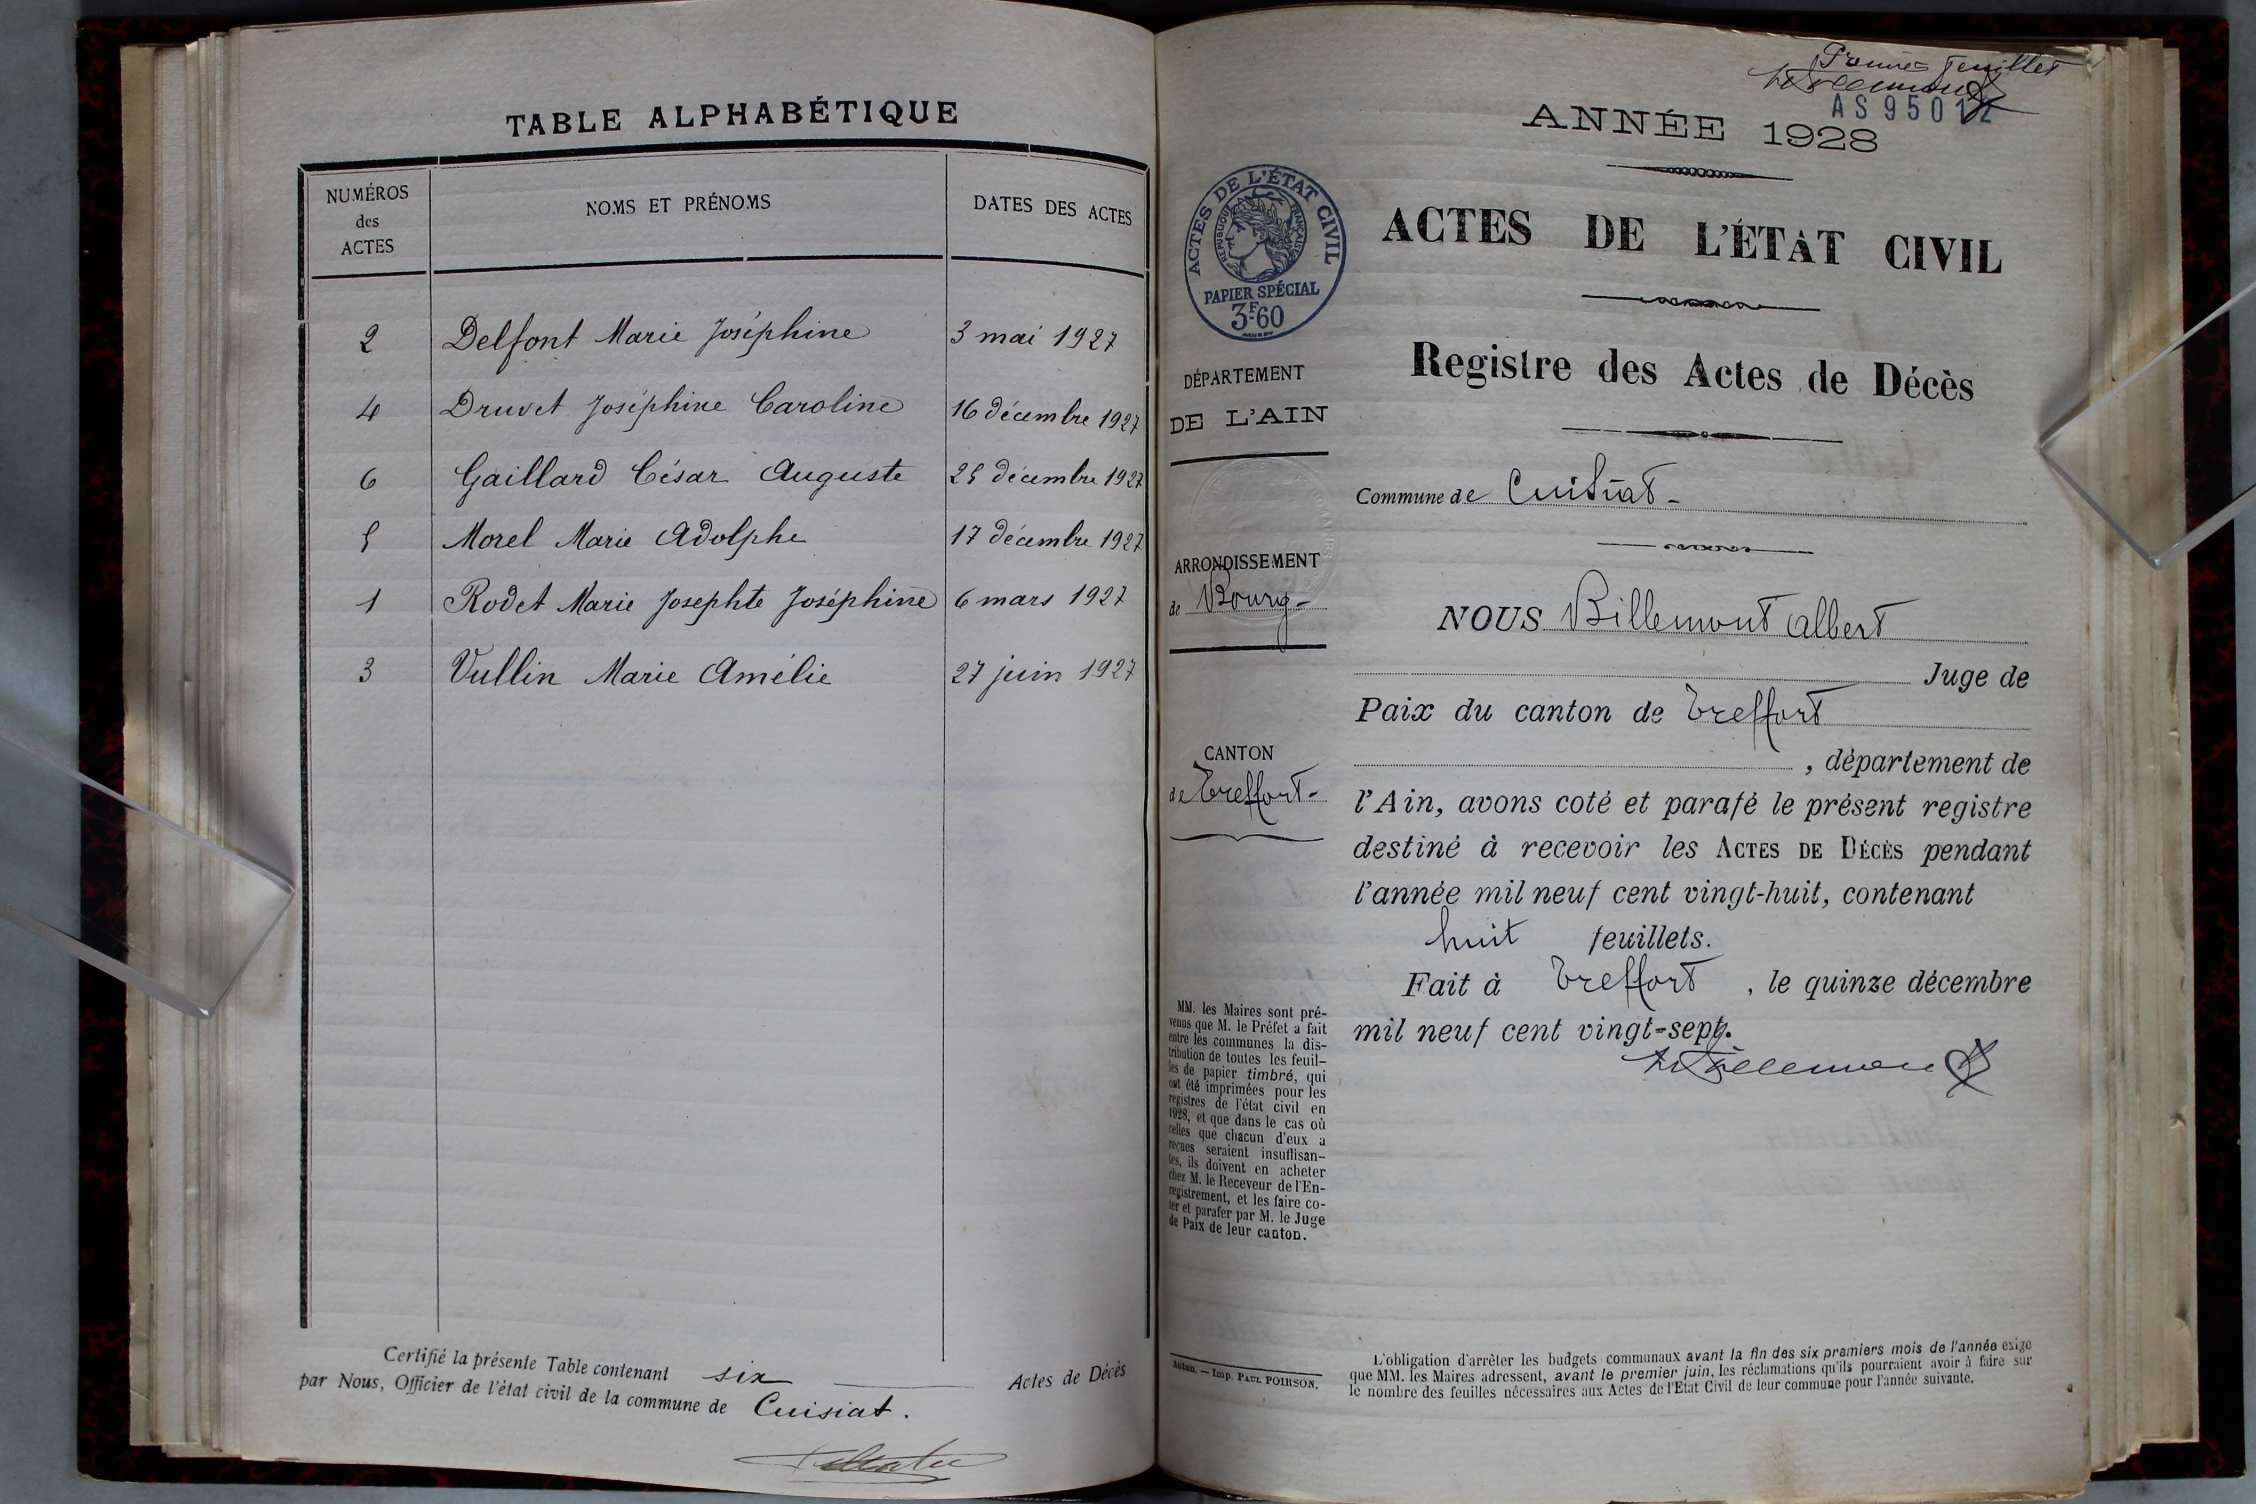 TABLE ALPHABÉTIQUE
NUMÉROS
des
ACTES
NOMS ET PRÉNOMS
DATES DES ACTES
2 Delfont Marie Joséphine 3 mai 1927
4 Druvet Joséphine Caroline 16 décembre 1927
6 Gaillard César Auguste 25 décembre 1927
5 Morel Marie Adolphe 17 décembre 1927
1 Rodet Marie Josephte Joséphine 6 mars 1927
3 Vullin Marie Amélie 27 juin 1927
Certifié la présente Table contenant six Actes de Décès
par Nous, Officier de l'état civil de la commune de Cuisiat.
Premier feuillet
ANNÉE 1928
ACTES DE L'ÉTAT CIVIL
RÉPUBLIQUE FRANÇAISE
PAPIER SPÉCIAL
3F60
ACTES DE L'ÉTAT CIVIL
Registre des Actes de Décès
DÉPARTEMENT
DE L'AIN
Commune de Cuisiat-
ARRONDISSEMENT
de Bourg-
CANTON
de Treffort-
NOUS Billemont Albert
Juge de
Paix du canton de Treffort
, département de
l'Ain, avons coté et parafé le présent registre
destiné à recevoir les ACTES DE DÉCÈS pendant
l'année mil neuf cent vingt-huit, contenant
huit feuillets.
Fait à Treffort, le quinze décembre
mil neuf cent vingt-sept.
MM. les Maires sont pré-
venus que M. le Préfet a fait
entre les communes la dis-
tribution de toutes les feuil-
les de papier timbré, qui
ont été imprimées pour les
registres de l'état civil en
1928, et que dans le cas où
celles que chacun d'eux a
reçues seraient insuffisan-
tes, ils doivent en acheter
chez M. le Receveur de l'En-
registrement, et les faire co-
ter et parafer par M. le Juge
de Paix de leur canton.
Autun. — Imp. PAUL POIRSON.
L'obligation d'arrêter les budgets communaux avant la fin des six premiers mois de l'année exige
que MM. les Maires adressent, avant le premier juin, les réclamations qu'ils pourraient avoir à faire sur
le nombre des feuilles nécessaires aux Actes de l'Etat Civil de leur commune pour l'année suivante.